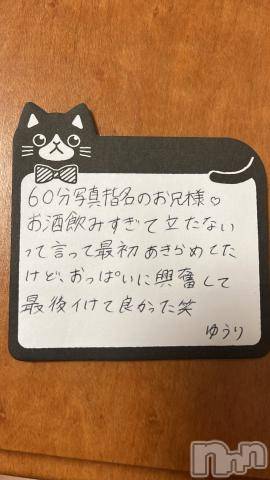 60分写真指名のお兄様♡
お酒飲みすぎて立たない
って言って最初あきらめてた
けど、おっぱいに興奮して
最後イけて良かった笑
ゆうり